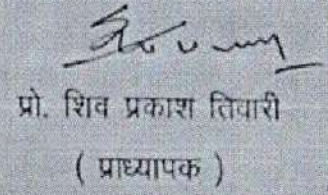 प्रो. शिव प्रकाश तिवारी
( प्राध्यापक )